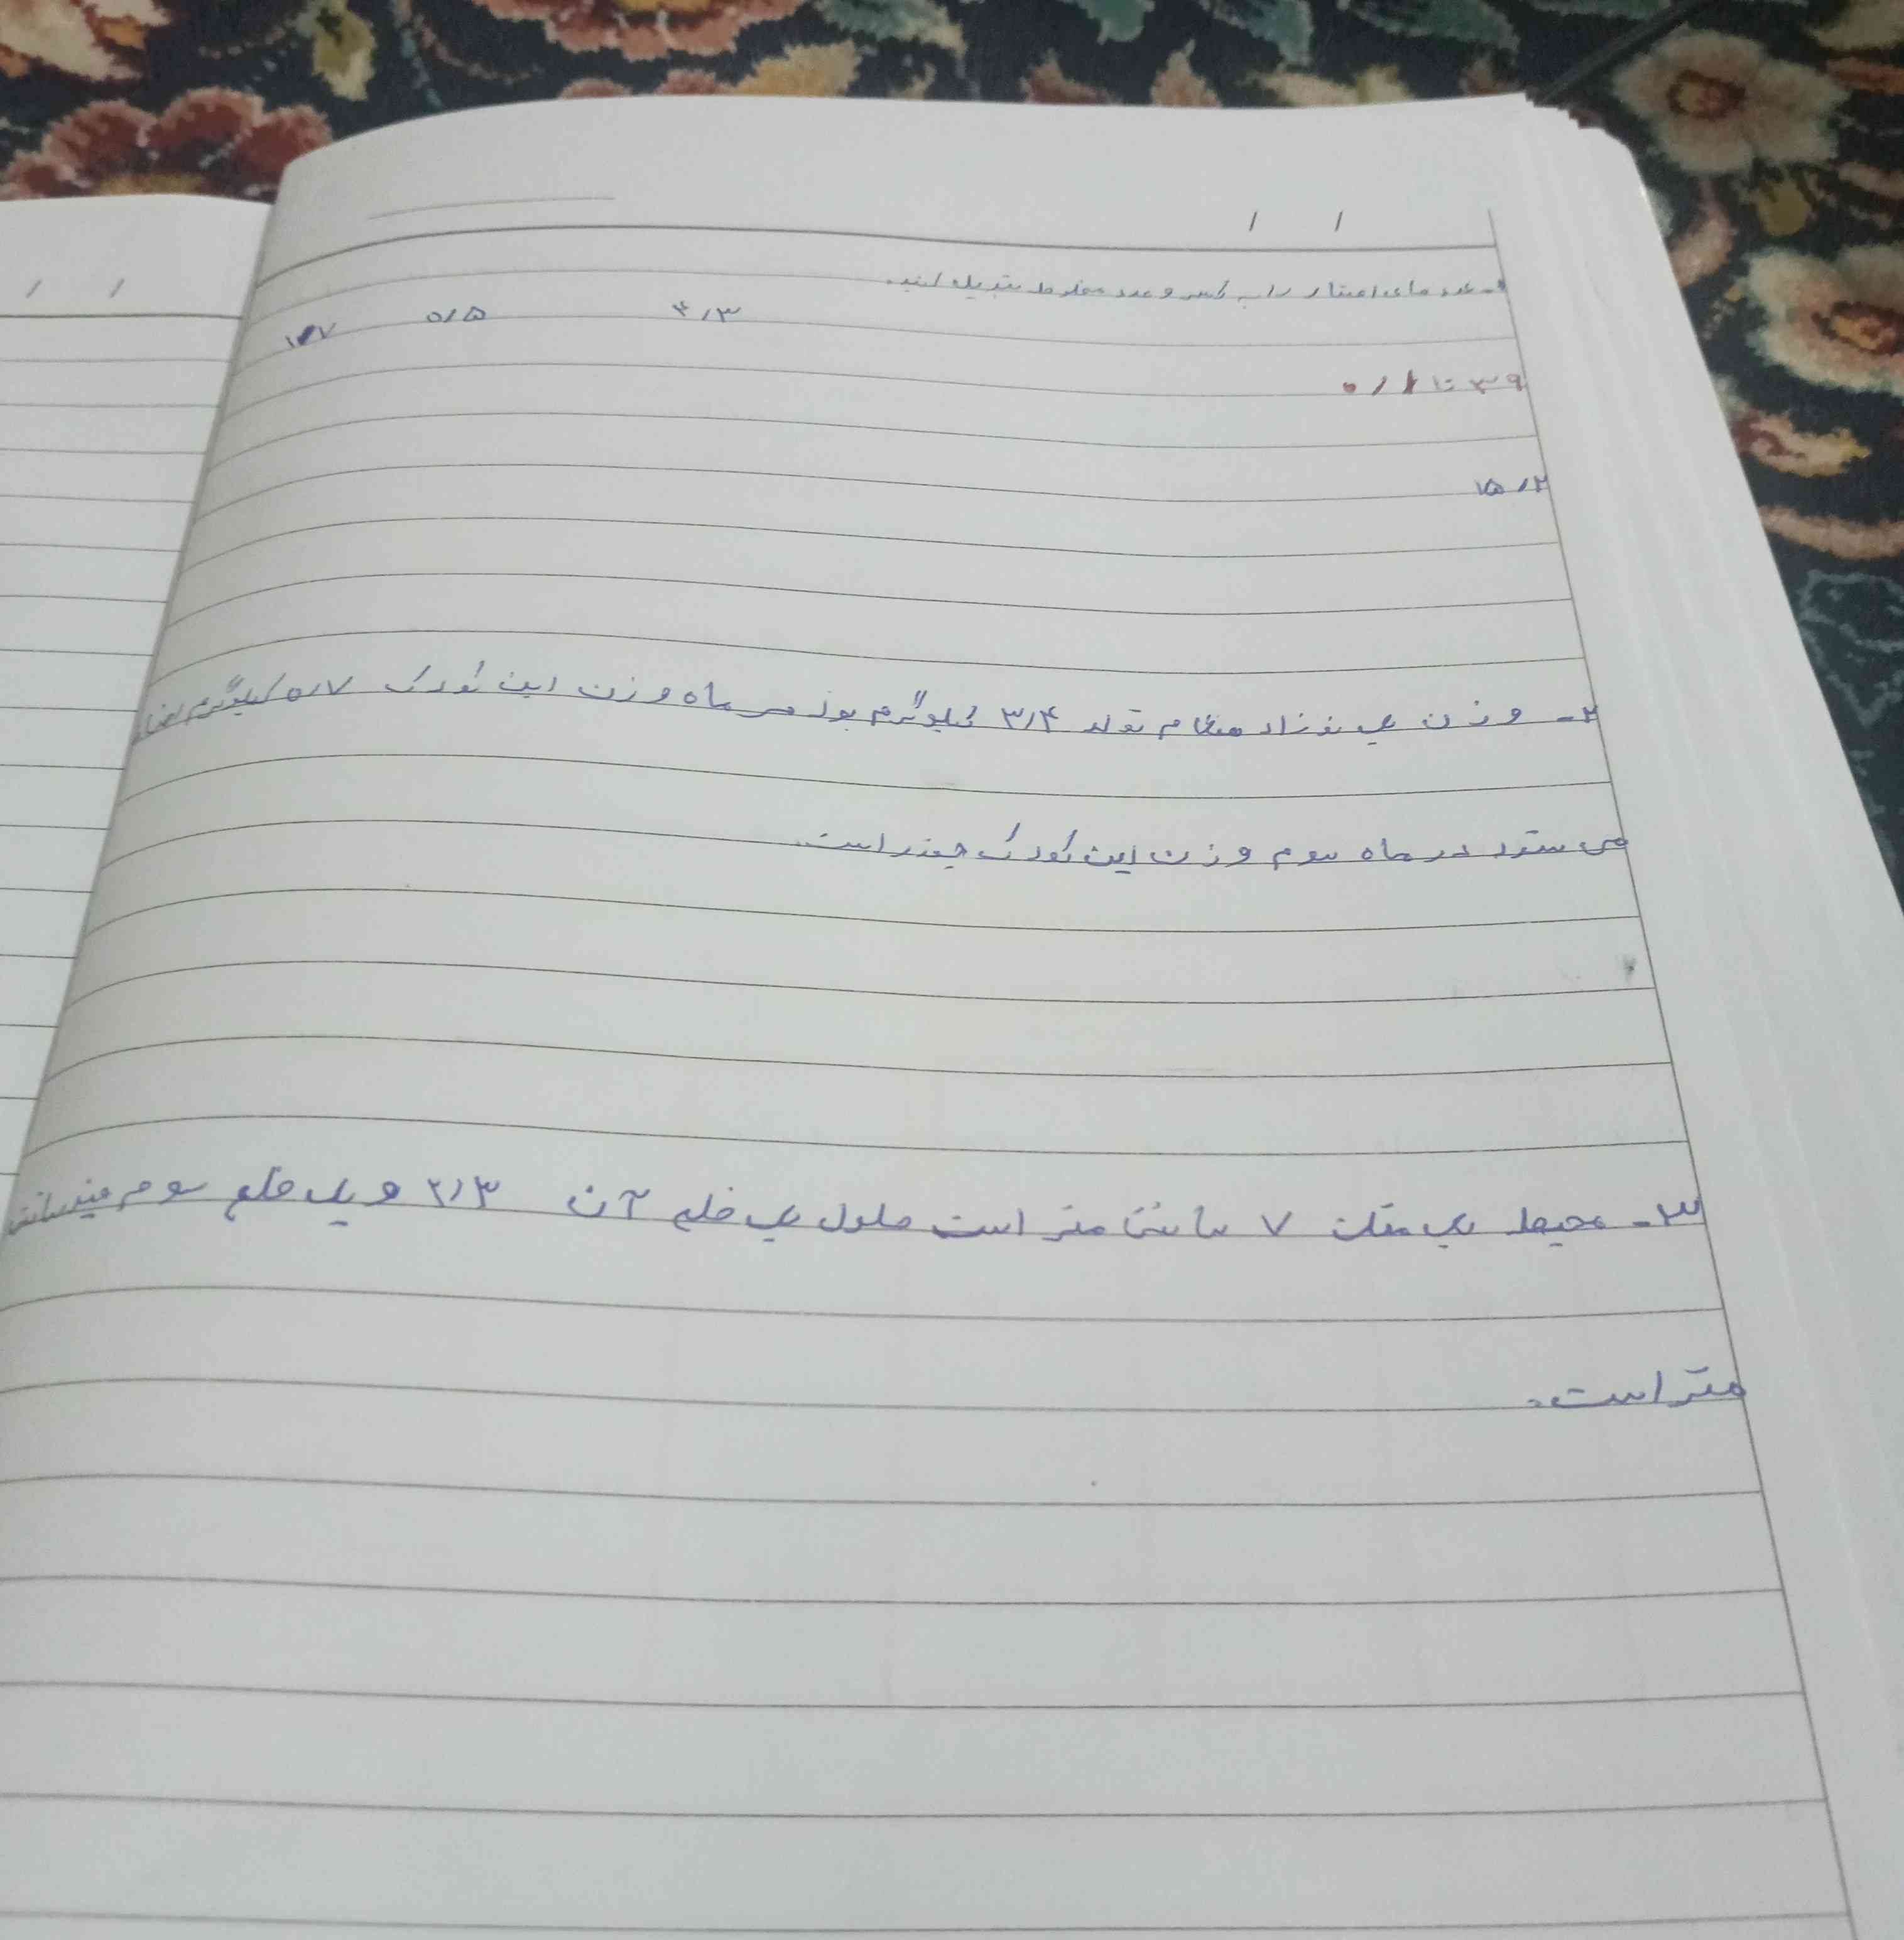 ۱- عدد های اعشار را به کسر و عدد مخلوط تبدیل کنید.
۴/۳ ۵/۵ ۱/۷
۳۹ تا ۰/۱
۷۵/۲
۲- وزن یک نوزاد هنگام تولد ۳/۴ کیلوگرم بود هر ماه وزن این کودک ۰/۷ کیلوگرم اضافه
می شود در ماه سوم وزن این کودک چقدر است.
۳- محیط یک مثلث ۷ سانتی متر است طول یک ضلع آن ۲/۳ و یک ضلع سوم چند سانتی
متر است.